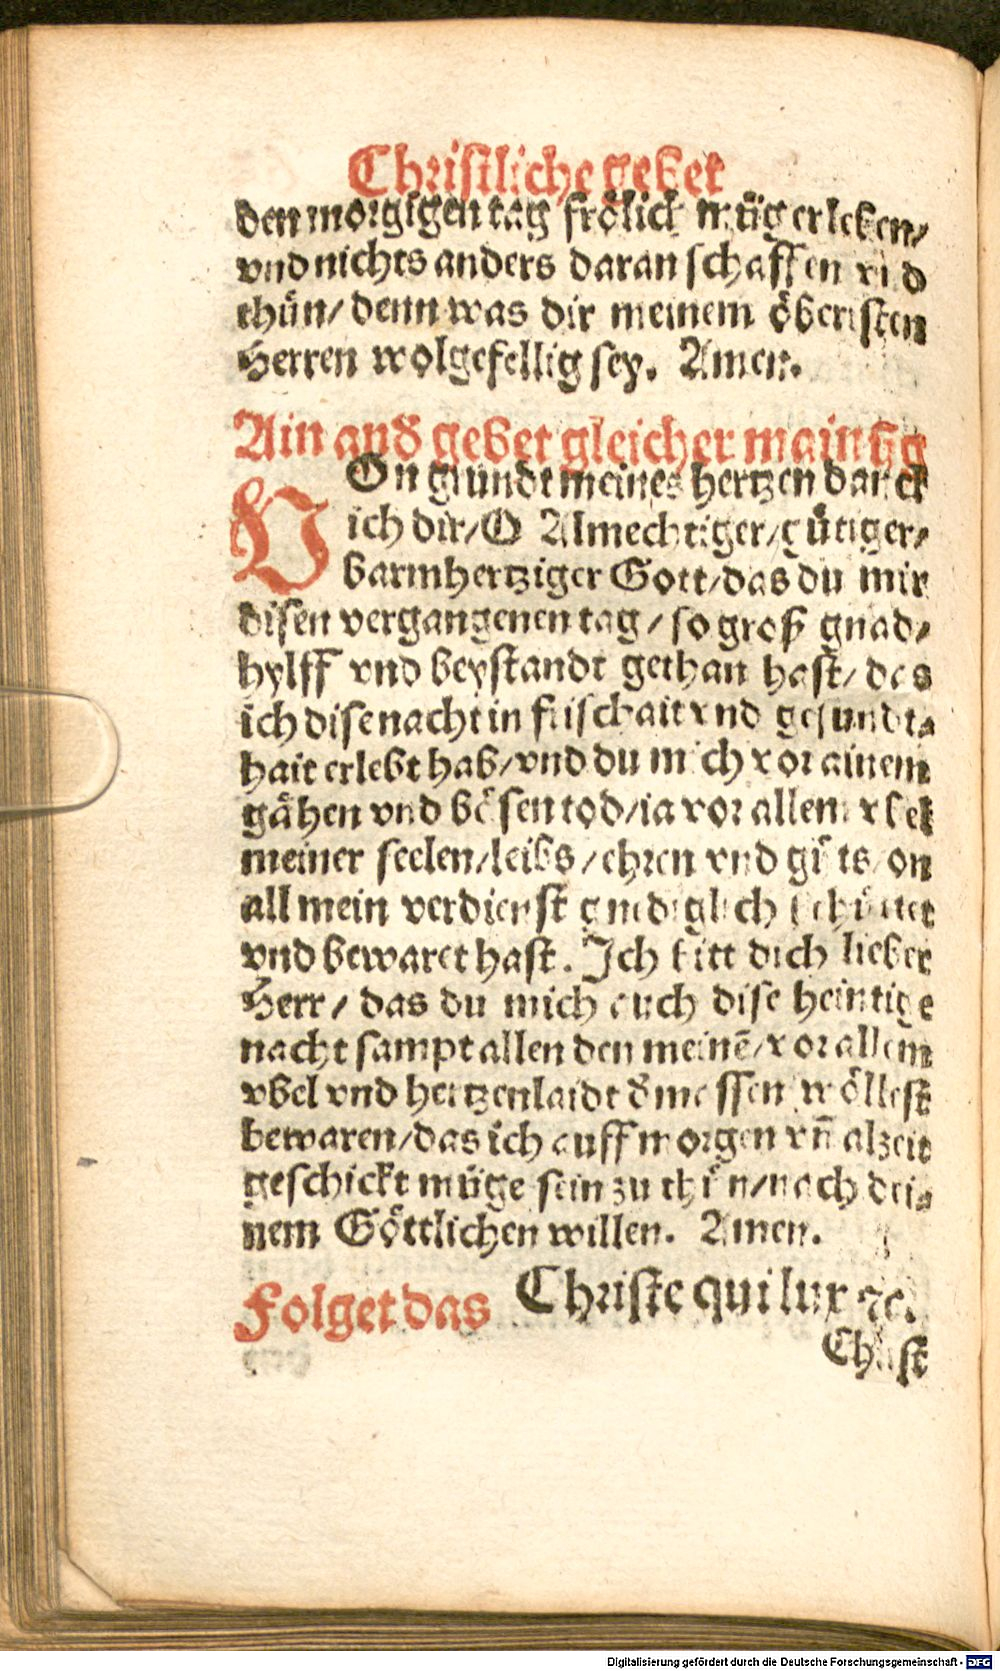 Christliche gebet
den morgigen tag frölich müg erleben/
vnd nichts anders daran schaffen vnd
thün/ denn was dir meinem öbersten
Herren wolgefellig sey. Amen.
Ain and̄ gebet gleicher mainūg
VOn grundt meines hertzen danck
ich dir/ O Almechtiger/ gütiger/
barmhertziger Gott/ das du mir
disen vergangenen tag/ so groß gnad/
hylff vnd beystandt gethan hast/ das
ich dise nacht in frischait vnd gesundt⸗
hait erlebt hab/ vnd du mich vor ainem
gåhen vnd bösen tod/ ia vor allem vbel
meiner seelen/ leibs/ ehren vnd gůts/ on
all mein verdienst gnediglich
vnd bewaret hast. Ich bitt dich lieber
Herr/ das du mich auch dise heintige
nacht sampt allen den meinē/ vor allem
vbel vnd hertzenlaidt d̄massen wöllest
bewaren/ das ich auff morgen vn̄ alzeit
geschickt müge sein zu thůn/ nach dei⸗
nem Göttlichen willen. Amen.
Folget das Christe qui lux ꝛc.
Christ
Digitalisierung gefördert durch die Deutsche Forschungsgemeinschaft - DFG